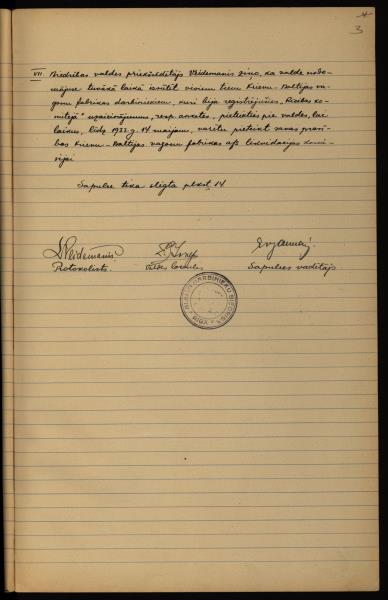 3
VII Biedrības valdes priekšsēdētājs Veidemanis ziņo, ka valde nodo-
mājuse tuvākā laikā izsūtīt visiem tiem Krievu-Baltijas va-
gonu fabrikas darbiniekiem, kuri bija reģistrējušies „Rīcības ko-
mitejā" uzaicinājumu, resp. anketes, pieteikties pie valdes, lai
laikus, līdz 1933 g. 14 maijam, varētu pieteikt savas prasī-
bas Krievu-Baltijas vagonu fabrikas a/s likvidacijas komi-
sijai
Sapulce tika slēgta plkst. 14
Veidemanis
Protokolists. Valdes loceklis Sapulces vadītājs
DARBINIEKU BIEDRĪB